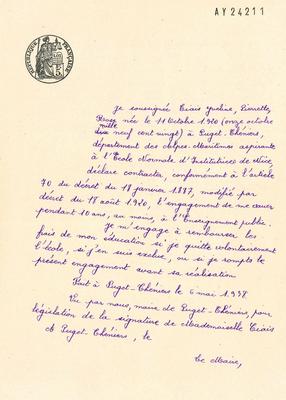 AY24211
RÉPUBLIQUE FRANÇAISE
je soussignée Ciais Yveline, Pierrette,
née le 11 Octobre 1920 (onze octobre
mille
neuf cent vingt) à Puget-Théniers,
département des Alpes-Maritimes aspirante
à l'Ecole Normale d'Institutrices de Nice,
déclare contracter, conformément à l'article
70 du décret du 18 janvier 1887, modifié par
décret du 18 août 1920, l'engagement de me vouer
pendant 10 ans, au moins, à l'Enseignement public.
Je m'engage à rembourser les
frais de mon éducation si je quitte volontairement
l'école, si j'en suis exclue, ou si je romps le
présent engagement avant sa réalisation
Fait à Puget-Théniers le 6 mai 1938
Vu par nous, maire de Puget-Théniers, pour
législation de la signature de Mademoiselle Ciais
A Puget-Théniers, le
Le Maire,